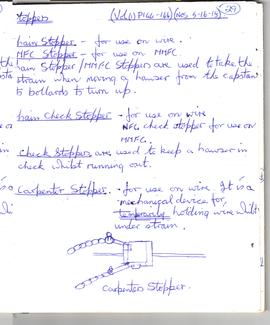 Stoppers (Vol(1) P164-166) (Nos. 5-16-15) 29
hain Stopper - for use on wire.
MFC Stopper - for use on MMFC.
ain Stopper / MMFC Stoppers are used to take the
strain when moving a hawser from the capstan
to bollards to turn up.
hain Check Stopper - for use on wire
NFC check stopper for use on
MMFC.
Check Stoppers are used to keep a hawser in
check whilst running out.
Carpenter Stopper. - for use on wire. It is a
mechanical device for
temporarily holding wire whilst
under strain.
Carpenter Stopper.